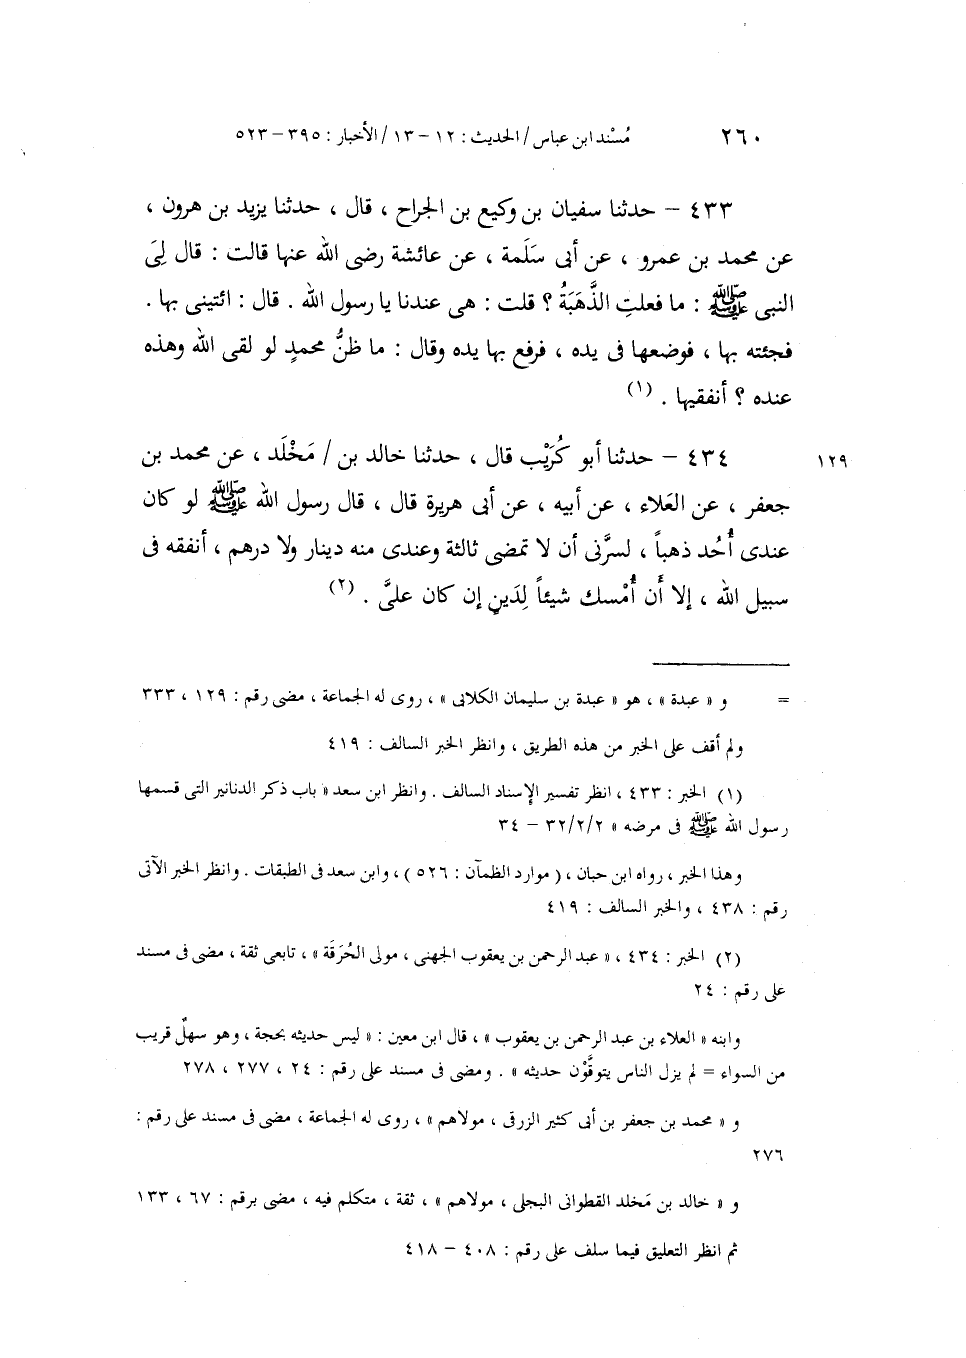 ٢٦٠ مُسْند ابن عباس / الحديث : ١٢ – ١٣ / الأخبار : ٣٩٥ – ٥٢٣
٤٣٣ – حدثنا سفيان بن وكيع بن الجراح ، قال ، حدثنا يزيد بن هرون ،
عن محمد بن عمرو ، عن أبى سَلَمة ، عن عائشة رضى الله عنها قالت : قال لِىَ
النبى ﷺ : ما فعلتِ الذَّهَبَةُ ؟ قلت : هى عندنا يا رسول الله . قال : ائتينى بها .
فجئته بها ، فوضعها فى يده ، فرفع بها يده وقال : ما ظنُّ محمدٍ لو لقى الله وهذه
عنده ؟ أنفقيها . (١)
٤٣٤ – حدثنا أبو كُرَيْب قال ، حدثنا خالد بن / مَخْلَد ، عن محمد بن ١٢٩
جعفر ، عن العَلاء ، عن أبيه ، عن أبى هريرة قال ، قال رسول الله ﷺ لو كان
عندى أُحُد ذهباً ، لسرَّنى أن لا تمضى ثالثة وعندى منه دينار ولا درهم ، أنفقه فى
سبيل الله ، إلا أَن أُمْسك شيئاً لِدَينٍ إن كان علىَّ . (٢)
= و « عبدة » ، هو « عبدة بن سليمان الكلابى » ، روى له الجماعة ، مضى رقم : ١٢٩ ، ٣٣٣
ولم أقف على الخبر من هذه الطريق ، وانظر الخبر السالف : ٤١٩
(١) الخبر : ٤٣٣ ، انظر تفسير الإسناد السالف . وانظر ابن سعد « باب ذكر الدنانير التى قسمها
رسول الله ﷺ فى مرضه » ٣٢/٢/٢ – ٣٤
وهذا الخبر ، رواه ابن حبان ، ( موارد الظمآن : ٥٢٦ ) ، وابن سعد فى الطبقات . وانظر الخبر الآتى
رقم : ٤٣٨ ، والخبر السالف : ٤١٩
(٢) الخبر : ٤٣٤ ، « عبد الرحمن بن يعقوب الجهنى ، مولى الحُرَقَة » ، تابعى ثقة ، مضى فى مسند
على رقم : ٢٤
وابنه « العلاء بن عبد الرحمن بن يعقوب » ، قال ابن معين : « ليس حديثه بحجة ، وهو سهلٌ قريب
من السواء = لم يزل الناس يتوقَّوْن حديثه » . ومضى فى مسند على رقم : ٢٤ ، ٢٧٧ ، ٢٧٨
و « محمد بن جعفر بن أبى كثير الزرقى ، مولاهم » ، روى له الجماعة ، مضى فى مسند على رقم :
٢٧٦
و « خالد بن مَخلد القطوانى البجلى ، مولاهم » ، ثقة ، متكلم فيه ، مضى برقم : ٦٧ ، ١٣٣
ثم انظر التعليق فيما سلف على رقم : ٤٠٨ – ٤١٨